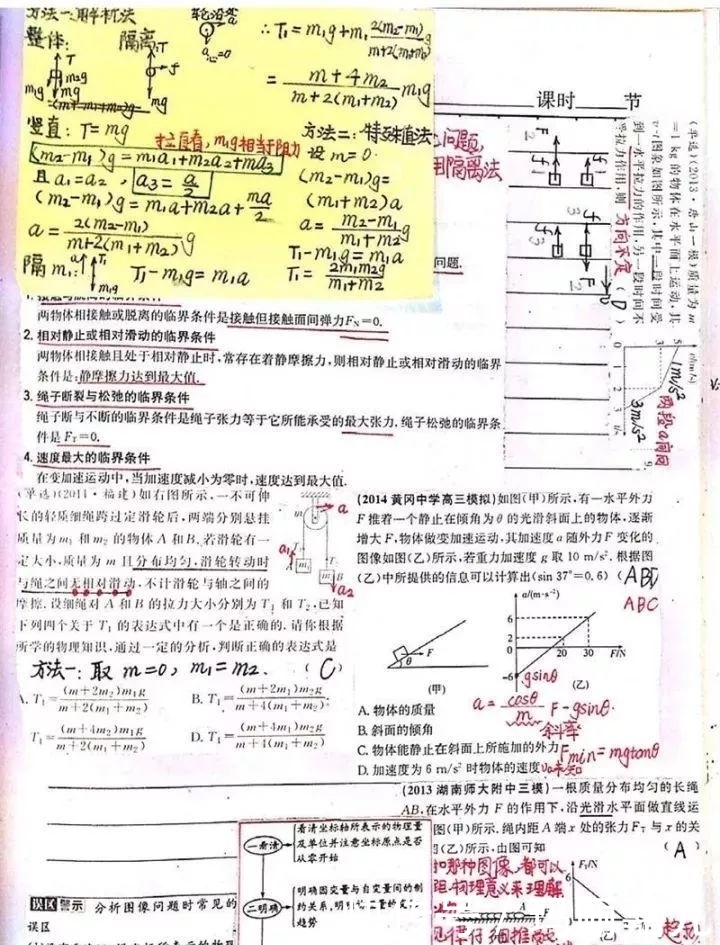 方法一:解析法
整体: 隔离:
T
m₂g
m₁g
mg
T
f
mg
竖直: T=mg
(m₂-m₁)g=m₁a₁+m₂a₂+ma₃
且a₁=a₂, a₃=a/2
(m₂-m₁)g=m₁a+m₂a+ma/2
a=2(m₂-m₁)/(m+2(m₁+m₂))g
隔m₁: T₁-m₁g=m₁a
∴T₁=m₁g+m₁2(m₂-m₁)/(m+2(m₁+m₂))g
=(m+4m₂)/(m+2(m₁+m₂))m₁g
m₁g相当于阻力
方法二:特殊值法
设m=0
(m₂-m₁)g=
(m₁+m₂)a
a=(m₂-m₁)/(m₁+m₂)g
T₁-m₁g=m₁a
T₁=2m₁m₂g/(m₁+m₂)
问题,
用隔离法
问题.
课时 节
(单选)(2013·唐山一模)质量为m
=1 kg的物体在水平面上运动,其
v-t图象如图所示,其中一段时间受
到一水平拉力的作用,另一段时间不
受拉力作用,则 方向不定 (D)
1m/s²
3m/s²
两段a同向
两物体相接触或脱离的临界条件是接触但接触面间弹力FN=0.
2. 相对静止或相对滑动的临界条件
两物体相接触且处于相对静止时,常存在着静摩擦力,则相对静止或相对滑动的临界
条件是:静摩擦力达到最大值.
3. 绳子断裂与松弛的临界条件
绳子断与不断的临界条件是绳子张力等于它所能承受的最大张力,绳子松弛的临界条
件是FT=0.
4. 速度最大的临界条件
在变加速运动中,当加速度减小为零时,速度达到最大值.
(单选)(2011·福建)如右图所示,一不可伸
长的轻质细绳跨过定滑轮后,两端分别悬挂
质量为m₁和m₂的物体A和B.若滑轮有一
定大小,质量为m且分布均匀,滑轮转动时
与绳之间无相对滑动,不计滑轮与轴之间的
摩擦.设细绳对A和B的拉力大小分别为T₁和T₂,已知
下列四个关于T₁的表达式中有一个是正确的.请你根据
所学的物理知识,通过一定的分析,判断正确的表达式是
方法一:取m=0, m₁=m₂. (C)
A. T₁=(m+2m₂)m₁g/(m+2(m₁+m₂)) B. T₁=(m+2m₁)m₂g/(m+4(m₁+m₂))
T₁=(m+4m₂)m₁g/(m+2(m₁+m₂)) D. T₁=(m+4m₁)m₂g/(m+4(m₁+m₂))
(2014黄冈中学高三模拟)如图(甲)所示,有一水平外力
F推着一个静止在倾角为θ的光滑斜面上的物体,逐渐
增大F,物体做变加速运动,其加速度a随外力F变化的
图像如图(乙)所示,若重力加速度g取10 m/s².根据图
(乙)中所提供的信息可以计算出(sin 37°=0.6) (ABD
ABC
a/(m·s⁻²)
6
2
0
-6
20 30 F/N
F
θ
(甲)
(乙)
gsinθ
a=cosθ/m F-gsinθ.
斜率
A. 物体的质量
B. 斜面的倾角
C. 物体能静止在斜面上所施加的外力
Fmin=mgtanθ
D. 加速度为6 m/s²时物体的速度
v₀未知
(2013湖南师大附中三模)一根质量分布均匀的长绳
AB,在水平外力F的作用下,沿光滑水平面做直线运
图(甲)所示.绳内距A端x处的张力FT与x的关
图(乙)所示,由图可知 (A)
FT/N
6
(乙)
一看清
看清坐标轴所表示的物理量
及单位并注意坐标原点是否
从零开始
二明确
明确因变量与自变量间的制
约关系,明
趋势
误区警示 分析图像问题时常见的
误区